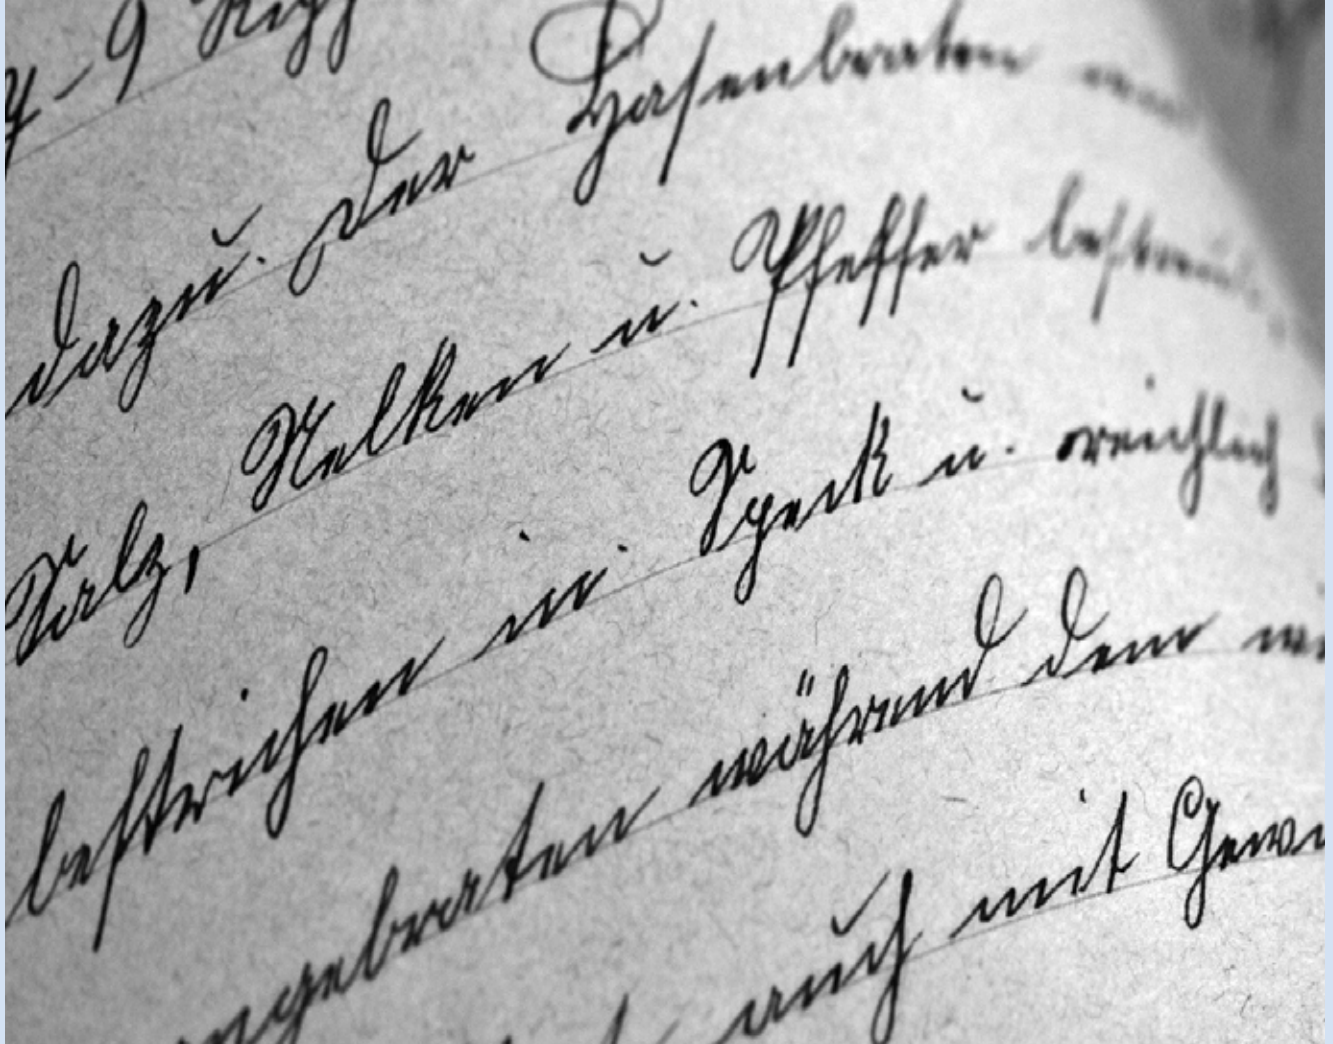 dazu. Der Hasenbraten
Salz, Nelken u. Pfeffer bestreut
bestrichen in Speck u. reichlich
angebraten während dem
auch mit